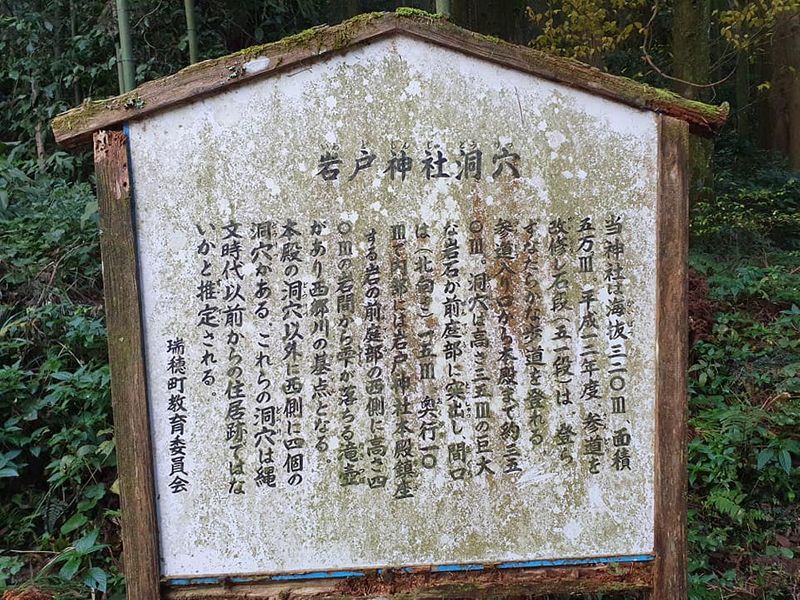 岩戸神社洞穴
当神社は海抜三二〇m 面積
五万m 平成一二年度 参道を
改修し石段(五一段)は、登ら
ずなだらかな歩道を登れる。
参道入り口から本殿まで約三五
〇m、洞穴は高さ三五mの巨大
な岩石が前庭部に突出し、間口
は(北向き)一五m 奥行一〇
mで内部には岩戸神社本殿鎮座
する岩の前庭部の西側に高さ四
〇mの岩間から平か落らる滝壺
があり西郷川の基点となる。
本殿の洞穴以外に西側に四個の
洞穴がある。これらの洞穴は縄
文時代以前からの住居跡ではな
いかと推定される。
瑞穂町教育委員会